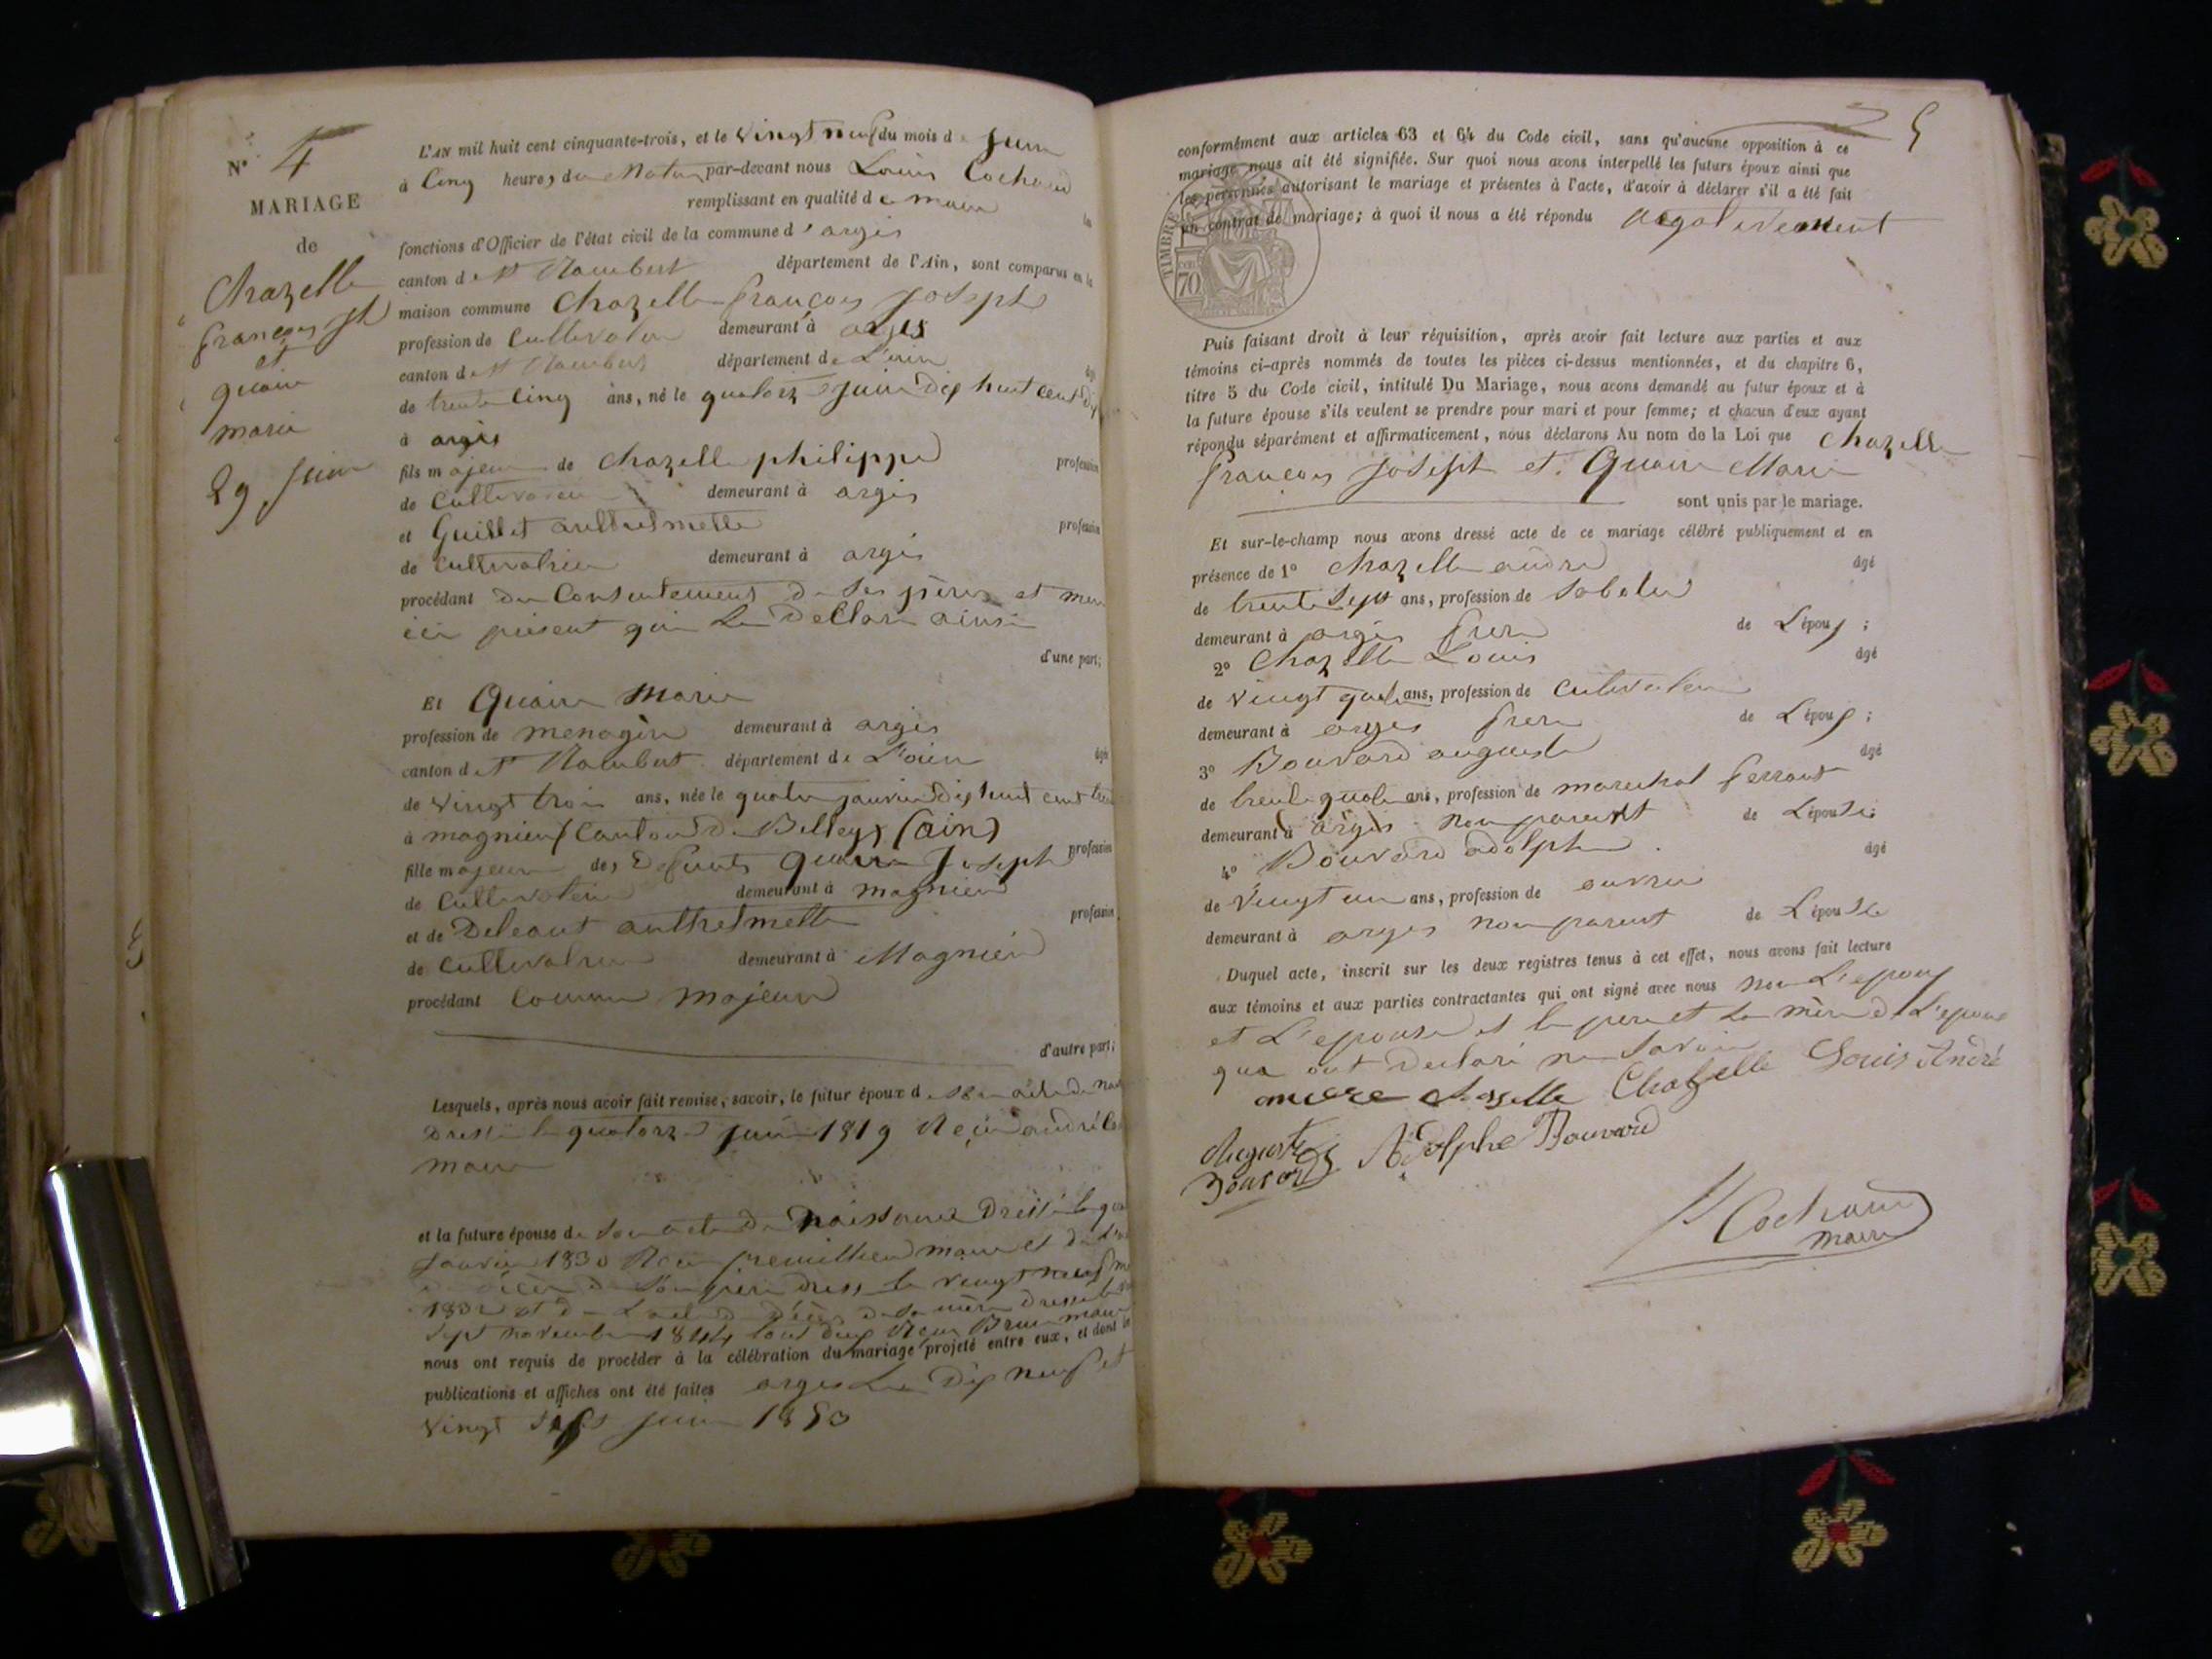 N° 4
MARIAGE
de
Chazelle
françois jh
et
quain
marie
29 Juin
L'AN mil huit cent cinquante-trois, et le vingt neuf du mois de Juin
à Cinq heures du Matin par-devant nous Louis Cochand
remplissant en qualité de maire les
fonctions d'Officier de l'état civil de la commune d'argis
canton de St Rambert département de l'Ain, sont comparus en la
maison commune Chazelle françois Joseph
profession de Cultivateur demeurant à argis
canton de St Rambert département de L'ain âgé
de trente Cinq ans, né le quatorze juin Dix huit cent Dix
à argis
fils majeur de Chazelle philippe profession
de Cultivateur demeurant à argis
et Guillet anthelmette profession
de Cultivatrice demeurant à argis
procédant du Consentement de Ses père et mere
ici présent qui Le Déclare ainsi
d'une part;
Et Quain Marie
profession de menagère demeurant à argis
canton de St Rambert département de L'ain âgée
de vingt trois ans, née le quatre janvier Dix huit cent
à magnieu Canton de Belley (ain)
fille majeure des Défunts Quain Joseph profession
de Cultivateur demeurant à magnieu
et de Deleaut anthelmette profession
de Cultivatrice demeurant à Magnieu
procédant Comme majeure
d'autre part;
Lesquels, après nous avoir fait remise, savoir, le futur époux de Son acte de
Dressé le quatorze juin 1819 Reçu andré
maire
et la future épouse de Son acte de Naissance Dressé le
Janvier 1830 Reçu maire et de
décès de Son père dressé le vingt neuf
et de L'acte de Décès de Sa mère dressé le
Sept novembre 1844 tous deux Reçu Brun maire
nous ont requis de procéder à la célébration du mariage projeté entre eux, et dont les
publications et affiches ont été faites argis Le Dix neuf et
vingt Six juin 1853
5
conformément aux articles 63 et 64 du Code civil, sans qu'aucune opposition à ce
mariage nous ait été signifiée. Sur quoi nous avons interpellé les futurs époux ainsi que
les personnes autorisant le mariage et présentes à l'acte, d'avoir à déclarer s'il a été fait
un contrat de mariage; à quoi il nous a été répondu négativement
TIMBRE
70
Puis faisant droit à leur réquisition, après avoir fait lecture aux parties et aux
témoins ci-après nommés de toutes les pièces ci-dessus mentionnées, et du chapitre 6,
titre 5 du Code civil, intitulé Du Mariage, nous avons demandé au futur époux et à
la future épouse s'ils veulent se prendre pour mari et pour femme; et chacun d'eux ayant
répondu séparément et affirmativement, nous déclarons Au nom de la Loi que Chazelle
françois Joseph et Quain Marie
sont unis par le mariage.
Et sur-le-champ nous avons dressé acte de ce mariage célébré publiquement et en
présence de 1° Chazelle andré âgé
de trente Sept ans, profession de Sabotier
demeurant à argis frere de L'époux ;
2° Chazelle Louis âgé
de vingt quatre ans, profession de cultivateur
demeurant à argis frere de L'époux ;
3° Bouvard auguste âgé
de trente quatre ans, profession de marechal ferrant
demeurant à argis non parent de L'épouse;
4° Bouvard adolphe âgé
de Vingt un ans, profession de ouvrier
demeurant à argis non parent de L'épouse
Duquel acte, inscrit sur les deux registres tenus à cet effet, nous avons fait lecture
aux témoins et aux parties contractantes qui ont signé avec nous non L'epoux
et L'epouse et le pere et la mère de L'epoux
qui ont Declaré ne Savoir
andre chazelle Chazelle Louis André
Auguste
Bouvard Adolphe Bouvard
Cochand
maire